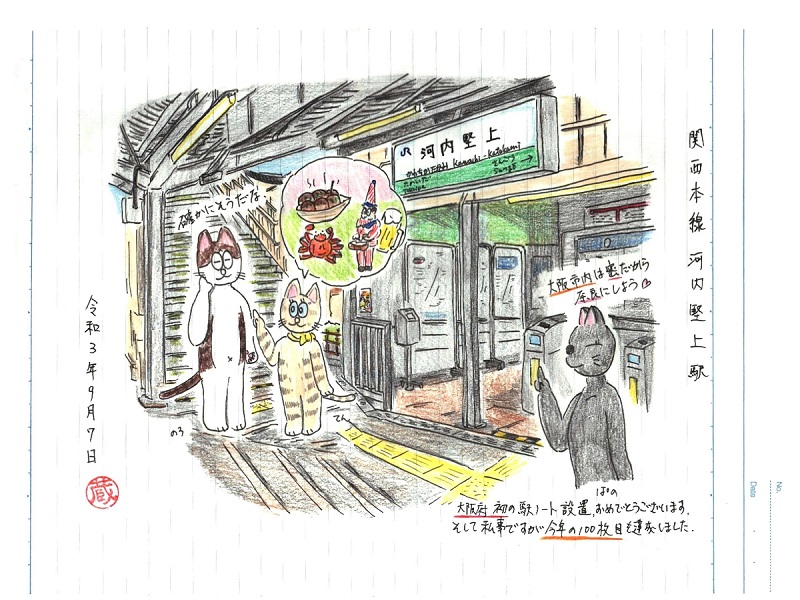 関西本線 河内堅上駅
JR 河内堅上
Kawachi-Katakami
確かにそうだな
大阪市内は密だから
奈良にしよう♡
のろ
てん
ぱの
大阪府初の駅ノート設置、おめでとうございます。
そして私事ですが今年の100枚目を達成しました。
令和3年9月7日
蔵
No.
Date